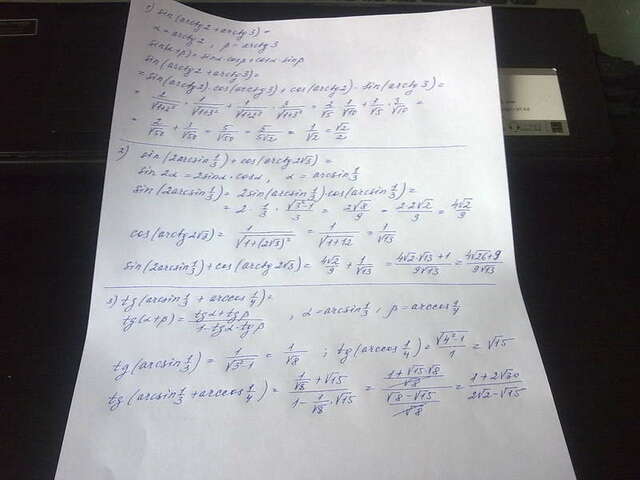 1) sin(arctg2+arctg3)=
α=arctg2, β=arctg3
sin(α+β)=sinα·cosβ+cosα·sinβ
sin(arctg2+arctg3)=
=sin(arctg2)·cos(arctg3)+cos(arctg2)·sin(arctg3)=
2/√50 + 3/√50 = 5/√50 = 5/5√2 = 1/√2 = √2/2
2) sin(2arcsin 1/3)+cos(arctg2√3)=
sin2α=2sinα·cosα, α=arcsin 1/3
sin(2arcsin 1/3)=2sin(arcsin 1/3)·cos(arcsin 1/3)=
=2· 1/3 · √(3²-1)/3 = 2√8/9 = 2·2√2/9 = 4√2/9
cos(arctg2√3)= 1/√(1+(2√3)²) = 1/√(1+12) = 1/√13
sin(2arcsin 1/3)+cos(arctg2√3)= 4√2/9 + 1/√13 = (4√2·√13+1)/9√13 = (4√26+9)/9√13
3) tg(arcsin 1/3 + arccos 1/4)=
tg(α+β)= (tgα+tgβ)/(1-tgα·tgβ), α=arcsin 1/3, β=arccos 1/4
tg(arcsin 1/3)= 1/√(3²-1) = 1/√8; tg(arccos 1/4)= √(4²-1)/1 = √15
tg(arcsin 1/3+arccos 1/4)= (1/√8+√15)/(1- 1/√8·√15) = ((1+√15·√8)/√8)/((√8-√15)/√8) = (1+2√30)/(2√2-√15)